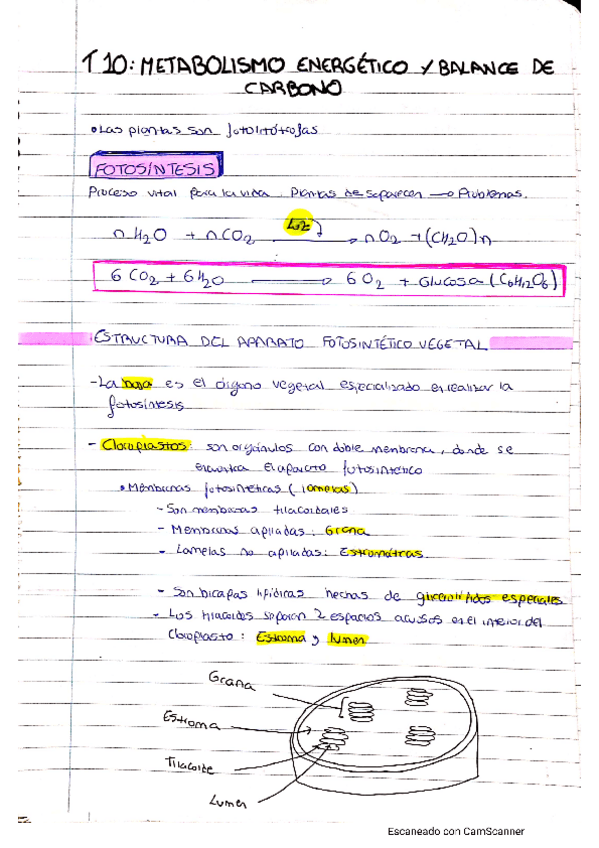 T 10: METABOLISMO ENERGÉTICO Y BALANCE DE
CARBONO
• Las plantas son fotolitótrofas
FOTOSÍNTESIS
Proceso vital para la vida. Plantas desaparecen → Problemas.
Luz
nH2O + nCO2 → nO2 + (CH2O)n
6 CO2 + 6H2O → 6O2 + Glucosa (C6H12O6)
ESTRUCTURA DEL APARATO FOTOSINTÉTICO VEGETAL
- La hoja es el órgano vegetal especializado en realizar la
fotosíntesis
- Cloroplastos: son orgánulos con doble membrana, donde se
encuentra el aparato fotosintético
• Membranas fotosintéticas (lamelas)
- Son membranas tilacoidales
- Membranas apiladas: Grana
- Lamelas no apiladas: Estromáticas
- Son bicapas lipídicas hechas de glicerolípidos especiales
- Los tilacoides separan 2 espacios acuosos en el interior del
cloroplasto: Estroma y lumen
Grana
Estroma
Tilacoide
Lumen
Escaneado con CamScanner